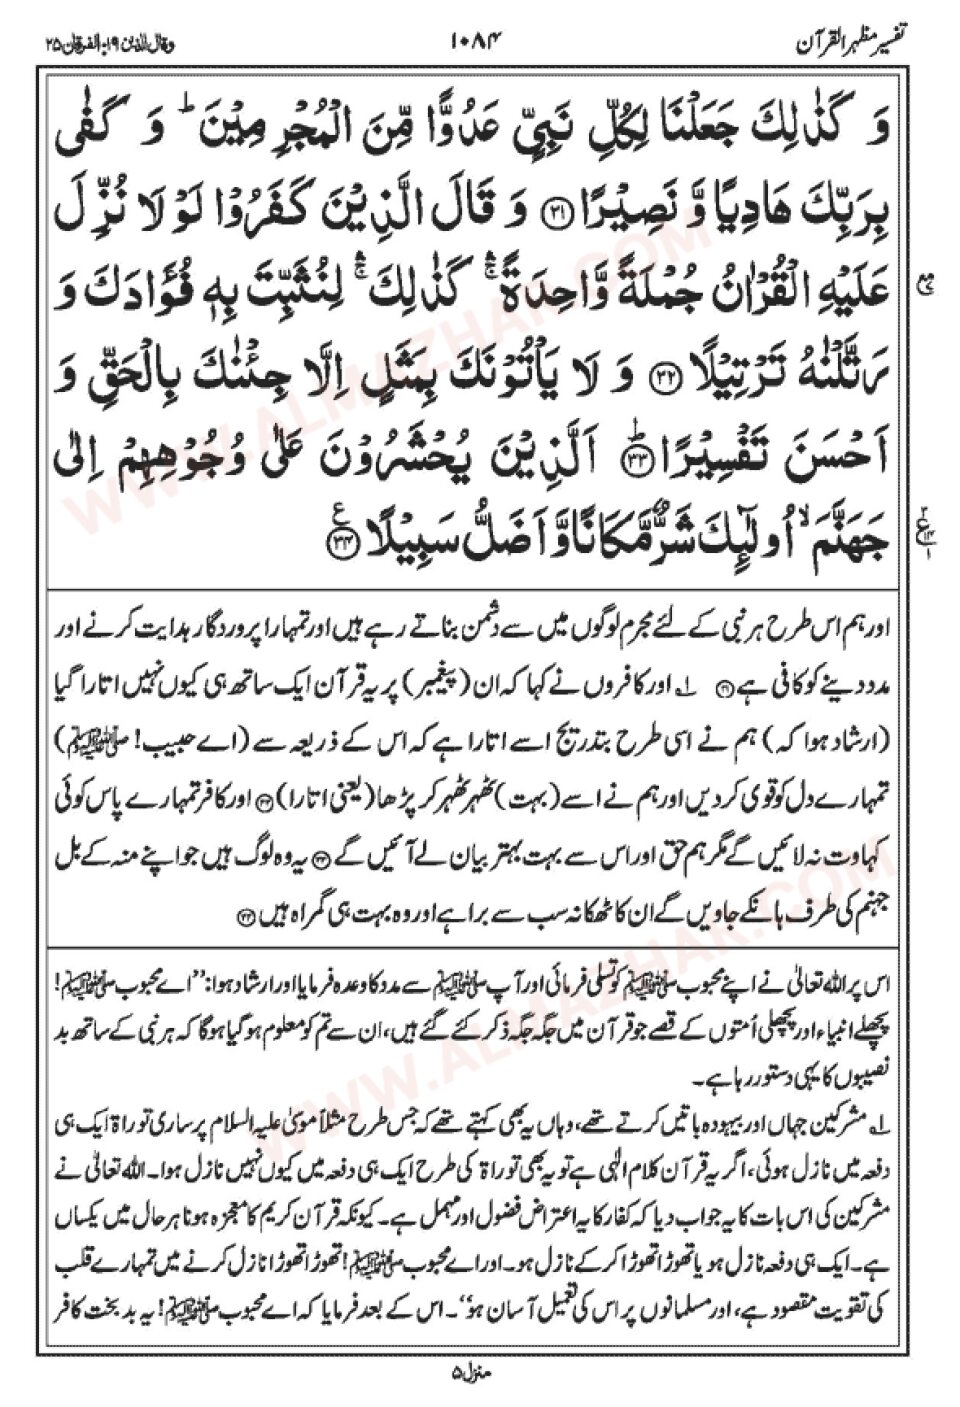 تفسیر مظہر القرآن ۱۰۸۴ وقال الذین ۱۹، الفرقان ۲۵
وَ كَذٰلِكَ جَعَلْنَا لِكُلِّ نَبِيٍّ عَدُوًّا مِّنَ الْمُجْرِمِيْنَ ؕ وَ كَفٰى
بِرَبِّكَ هَادِيًا وَّ نَصِيْرًا ﴿۳۱﴾ وَ قَالَ الَّذِيْنَ كَفَرُوْا لَوْ لَا نُزِّلَ
عَلَيْهِ الْقُرْاٰنُ جُمْلَةً وَّاحِدَةً ۛۚ كَذٰلِكَ ۛۚ لِنُثَبِّتَ بِهٖ فُؤَادَكَ وَ
رَتَّلْنٰهُ تَرْتِيْلًا ﴿۳۲﴾ وَ لَا يَاْتُوْنَكَ بِمَثَلٍ اِلَّا جِئْنٰكَ بِالْحَقِّ وَ
اَحْسَنَ تَفْسِيْرًا ﴿۳۳﴾ؕ اَلَّذِيْنَ يُحْشَرُوْنَ عَلٰى وُجُوْهِهِمْ اِلٰى
جَهَنَّمَ ۙ اُولٰٓئِكَ شَرٌّ مَّكَانًا وَّ اَضَلُّ سَبِيْلًا ﴿۳۴﴾ ع
اور ہم اس طرح ہر نبی کے لئے مجرم لوگوں میں سے دشمن بناتے رہے ہیں اور تمہارا پروردگار ہدایت کرنے اور
مدد دینے کو کافی ہے ﴿۳۱﴾ ۱؎ اور کافروں نے کہا کہ ان (پیغمبر) پر یہ قرآن ایک ساتھ ہی کیوں نہیں اتارا گیا
(ارشاد ہوا کہ) ہم نے اسی طرح بتدریج اسے اتارا ہے کہ اس کے ذریعہ سے (اے حبیب! ﷺ)
تمہارے دل کو قوی کر دیں اور ہم نے اسے (بہت) ٹھہر ٹھہر کر پڑھا (یعنی اتارا) ﴿۳۲﴾ اور کافر تمہارے پاس کوئی
کہاوت نہ لائیں گے مگر ہم حق اور اس سے بہت بہتر بیان لے آئیں گے ﴿۳۳﴾ یہ وہ لوگ ہیں جو اپنے منہ کے بل
جہنم کی طرف ہانکے جاویں گے ان کا ٹھکانہ سب سے برا ہے اور وہ بہت ہی گمراہ ہیں ﴿۳۴﴾
اس پر اللہ تعالیٰ نے اپنے محبوب ﷺ کو تسلی فرمائی اور آپ ﷺ سے مدد کا وعدہ فرمایا اور ارشاد ہوا: "اے محبوب ﷺ!
پچھلے انبیاء اور پچھلی اُمتوں کے قصے جو قرآن میں جگہ جگہ ذکر کئے گئے ہیں، ان سے تم کو معلوم ہو گیا ہوگا کہ ہر نبی کے ساتھ بد
نصیبوں کا یہی دستور رہا ہے۔
۱؎ مشرکین جہاں اور بیہودہ باتیں کرتے تھے، وہاں یہ بھی کہتے تھے کہ جس طرح مثلاً موسیٰ علیہ السلام پر ساری توراۃ ایک ہی
دفعہ میں نازل ہوئی، اگر یہ قرآن کلام الٰہی ہے تو یہ بھی توراۃ کی طرح ایک ہی دفعہ میں کیوں نہیں نازل ہوا۔ اللہ تعالیٰ نے
مشرکین کی اس بات کا یہ جواب دیا کہ کفار کا یہ اعتراض فضول اور مہمل ہے۔ کیونکہ قرآن کریم کا معجزہ ہونا ہر حال میں یکساں
ہے۔ ایک ہی دفعہ نازل ہو یا تھوڑا تھوڑا کر کے نازل ہو۔ اور اے محبوب ﷺ! تھوڑا تھوڑا نازل کرنے میں تمہارے قلب
کی تقویت مقصود ہے، اور مسلمانوں پر اس کی تعمیل آسان ہو"۔ اس کے بعد فرمایا کہ اے محبوب ﷺ! یہ بد بخت کافر
منزل ۵
WWW.ALMAZHAR.COM
WWW.ALMAZHAR.COM